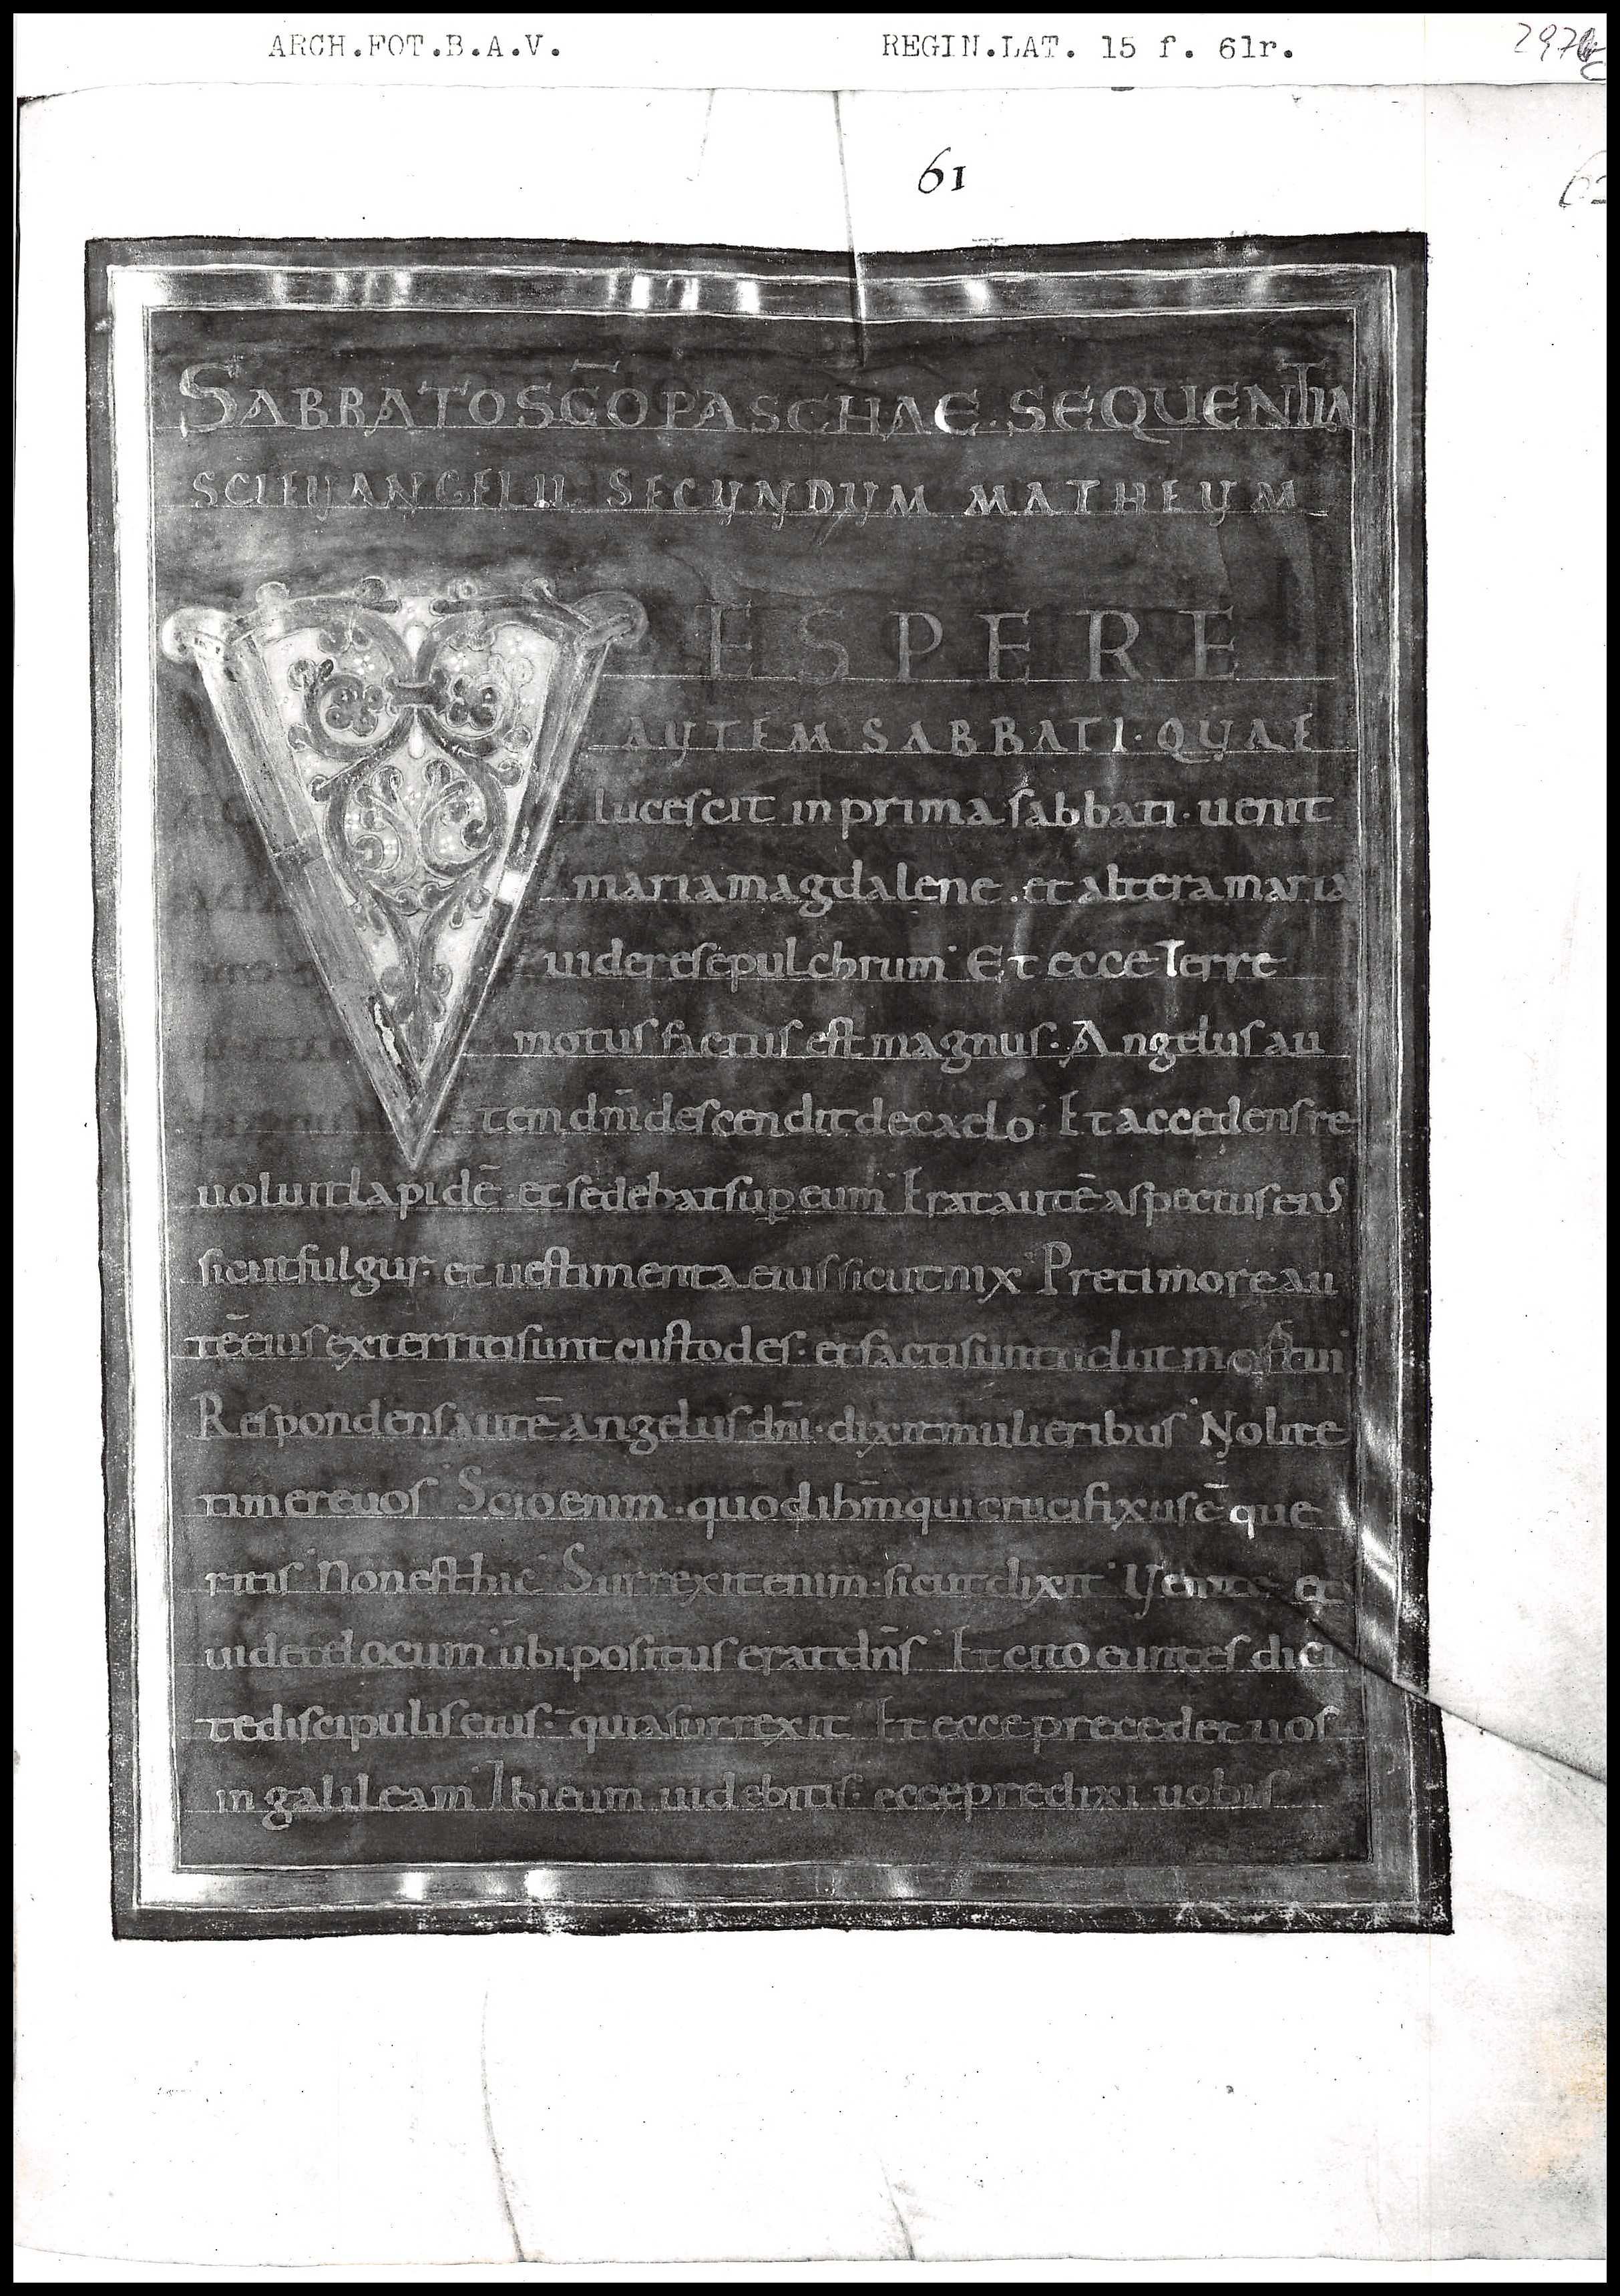 ARCH.FOT.B.A.V. REGIN.LAT. 15 f. 61r.
61
SABBATO SC̄O PASCHAE. SEQUENTIA
SCI EUANGELII SECUNDUM MATHEUM
VESPERE
AUTEM SABBATI· QUAE
lucescit in prima sabbati· uenit
maria magdalene. et altera maria
uidere sepulchrum· Et ecce terre
motus factus est magnus· Angelus au
tem dn̄i descendit de caelo· Et accedens re
uoluit lapidē· et sedebat sup̱ eum· Erat autē aspectus eius
sicut fulgur· et uestimenta eius sicut nix· Pre timore au
tē eius exterriti sunt custodes· et facti sunt uelut mortui
Respondens autē angelus dn̄i· dixit mulieribus· Nolite
timere uos· Scio enim· quod ih̄m qui crucifixus ē que
ritis· Non est hic· Surrexit enim· sicut dixit· Uenite et
uidete locum· ubi positus erat dn̄s· Et cito euntes dici
te discipulis eius· quia surrexit· Et ecce precedet uos
in galileam· Ibi eum uidebitis· ecce predixi uobis